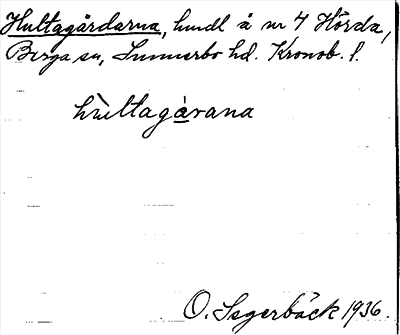 Hultagårdarna, hmdl å nr 4 Hörda,
Berga sn, Sunnerbo hd. Kronob. l.
hultagårana
O. Segerbäck 1936.